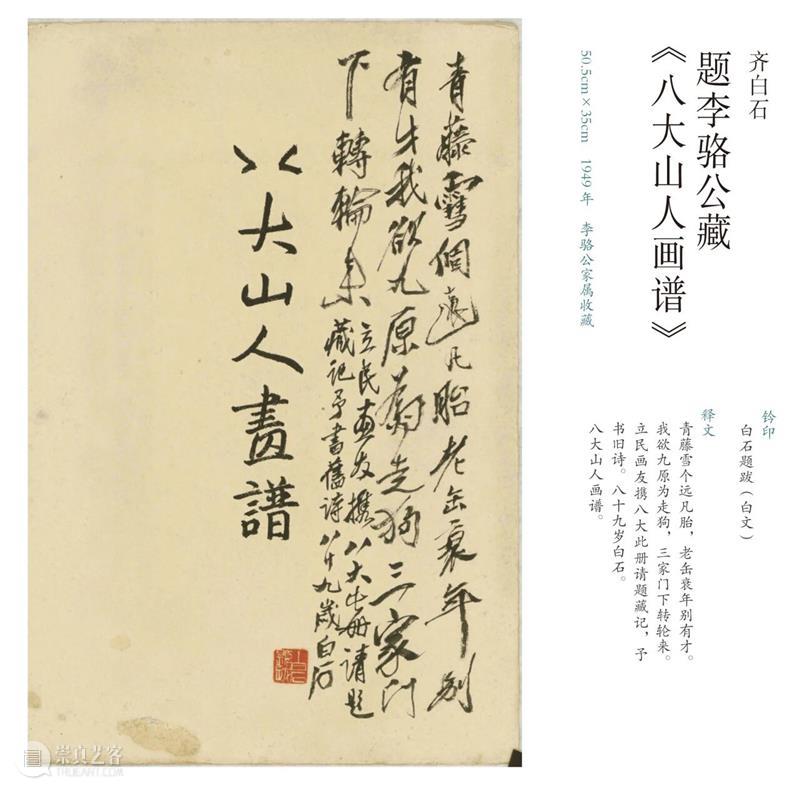 齐白石
题李骆公藏
《八大山人画谱》
50.5cm×35cm 1949年 李骆公家属收藏
钤印
白石题跋（白文）
释文
青藤雪个远凡胎，老缶衰年别有才。
我欲九原为走狗，三家门下转轮来。
立民画友携八大此册请题藏记，予
书旧诗。八十九岁白石。
八大山人画谱。
青藤雪個遠凡胎老缶衰年別
有才我欲九原為走狗三家門
下轉輪來
立民畫友攜八大此册請題
藏記予書舊詩八十九歲白石
八大山人畫譜
崇真艺客
TRUEART.COM